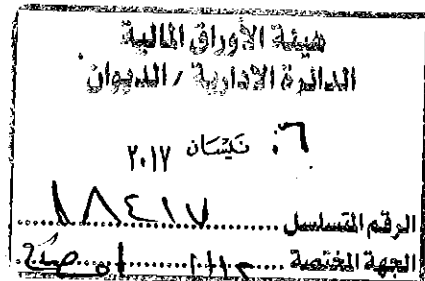 هيئة الأوراق المالية
الدائرة الادارية / الديوان
٠٦ نيسان ٢٠١٧
الرقم المتسلسل ١٨٤١٧
الجهة المختصة